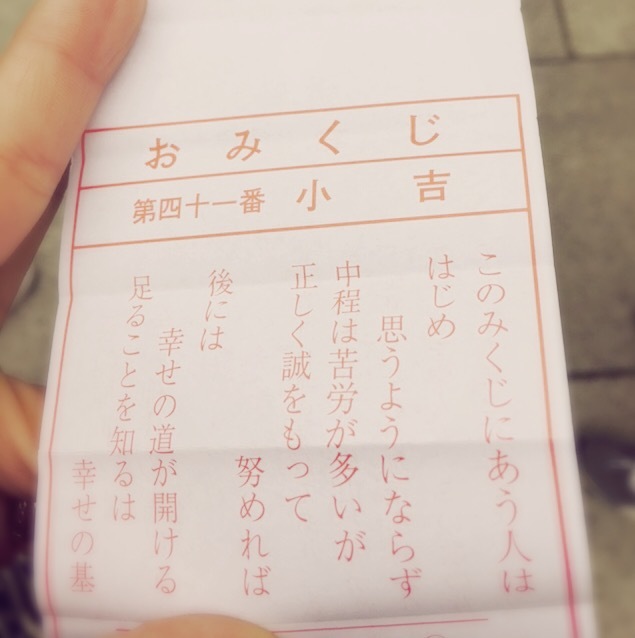 おみくじ
第四十一番 小吉
このみくじにあう人は
はじめ
思うようにならず
中程は苦労が多いが
正しく誠をもって
努めれば
後には
幸せの道が開ける
足ることを知るは
幸せの基